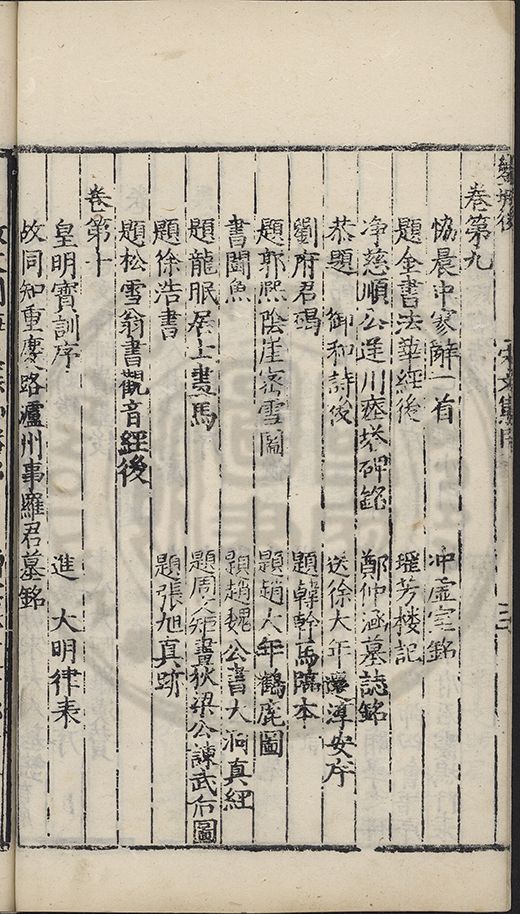 鑾坡後
卷第九
恊晨中冢辭一首 冲虛室銘
題金書法華經後 瑶芳樓記
净慈順公逆川瘞塔碑銘 鄭仲涵墓誌銘
恭題 御和詩後 送徐大年還淳安序
劉府君碣 題韓幹馬臨本
題郭熙陰崖密雪圖 題趙大年鶴鹿圖
書鬪魚 題趙魏公書大洞真經
題龍眠居士畫馬 題周 畫狄梁公諫武后圖
題徐浩書 題張旭真跡
題松雪翁書觀音經後
卷第十
皇明寶訓序 進 大明律表
故同知重慶路瀘州事羅君墓銘